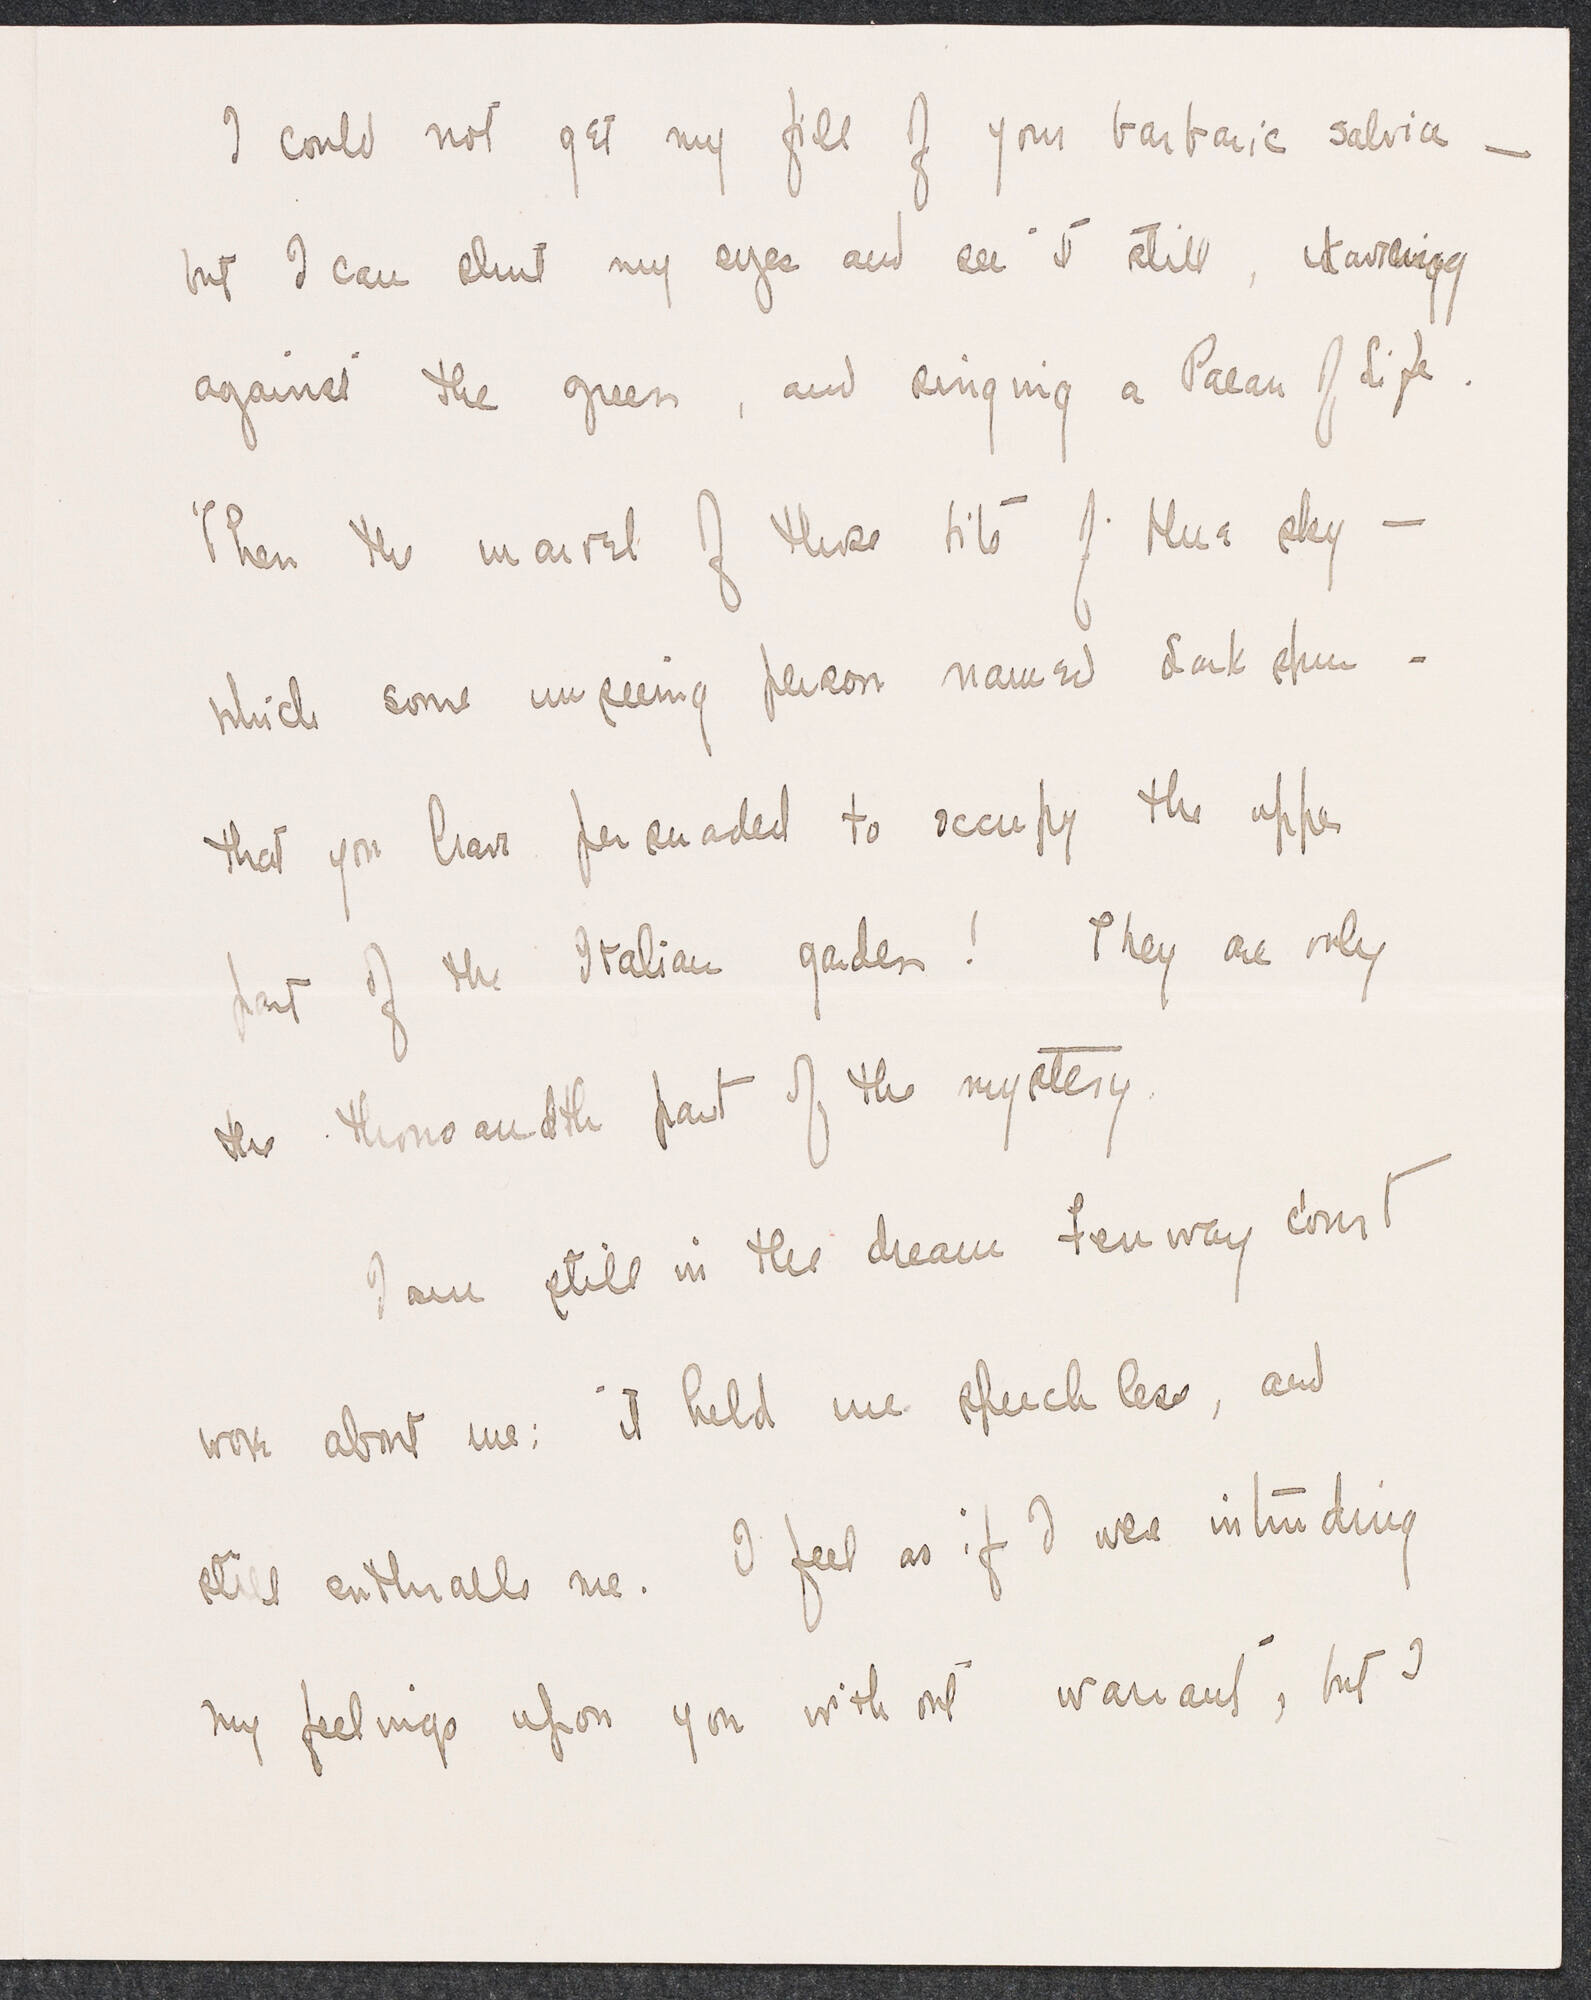 I could not get my fill of your barbaric salvia —
but I can shut my eyes and see it still,
against the green, and singing a Paean of Life.
Then the marvel of those bits of blue sky —
which some unseeing person named Larkspur -
that you have persuaded to occupy the upper
part of the Italian garden! They are only
the thousandth part of the mystery.
I am still in the dream Fenway Court
wove about me: it held me speechless, and
still enthralls me. I feel as if I were intruding
my feelings upon you without warrant, but I